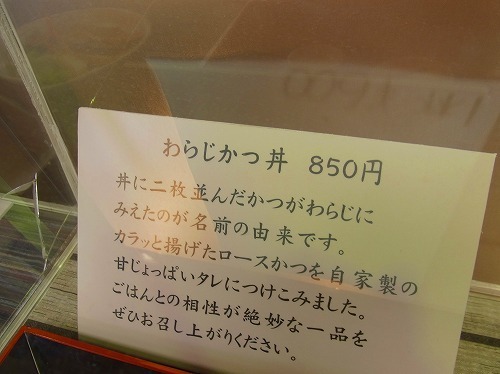 わらじかつ丼 850円
丼に二枚並んだかつがわらじに
みえたのが名前の由来です。
カラッと揚げたロースかつを自家製の
甘じょっぱいタレにつけこみました。
ごはんとの相性が絶妙な一品を
ぜひお召し上がりください。